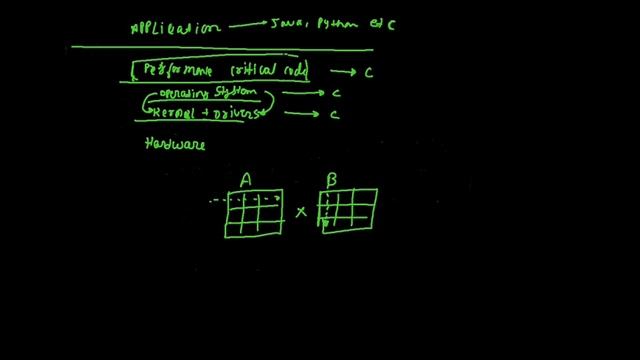 Application → Java, Python etc
Performance critical code → C
Operating System → C
Kernel + Drivers → C
Hardware
A B
×